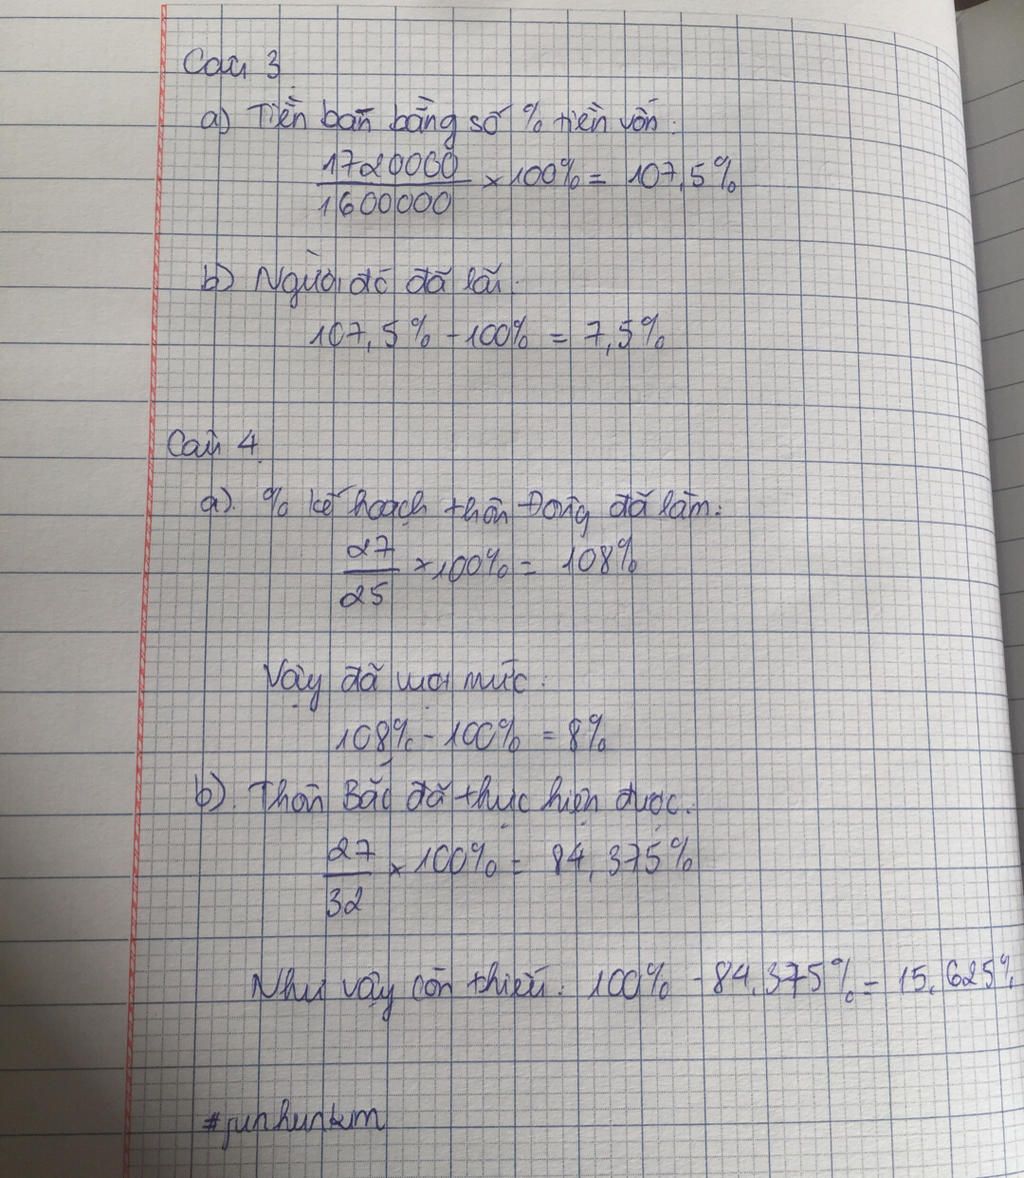 Câu 3
a) Tiền bán bằng số % tiền vốn:
1720000
1600000
× 100% = 107,5%
b) Người đó đã lãi:
107,5% - 100% = 7,5%
Câu 4
a). % kế hoạch thôn Đông đã làm:
27
25
× 100% = 108%
Vậy đã vượt mức:
108% - 100% = 8%
b). Thôn Bắc đã thực hiện được:
27
32
× 100% = 84,375%
Như vậy còn thiếu: 100% - 84,375% = 15,625%
#junhunkim